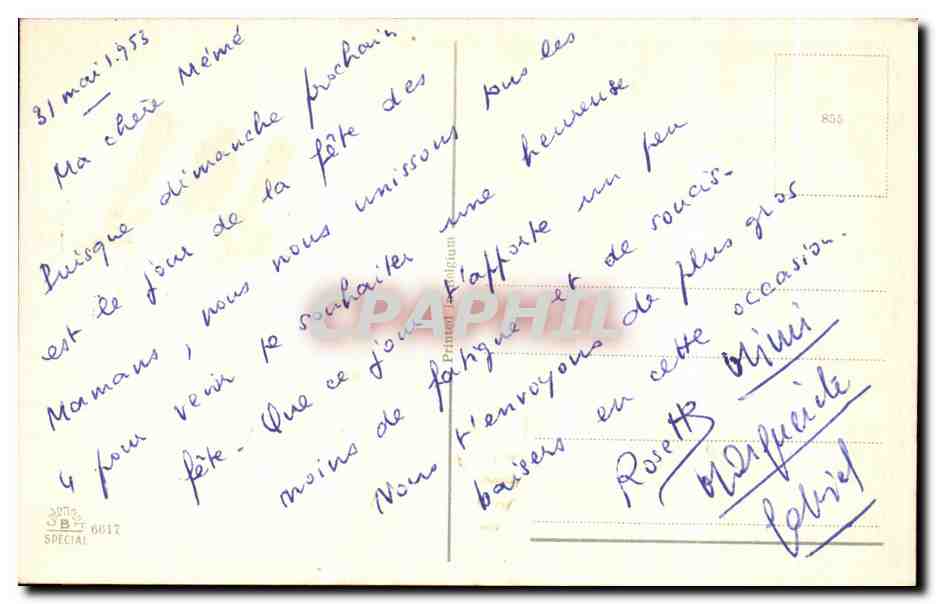 31 mai 1.953
Ma chère Mémé
Puisque dimanche prochain
est le jour de la fête des
Mamans, nous nous unissons tous les
4 pour venir te souhaiter une heureuse
fête - Que ce jour t'apporte un peu
moins de fatigue et de soucis -
Nous t'envoyons de plus gros
baisers en cette occasion.
Rosette Mimi
Marguerite
Gabriel
855
Printed in Belgium
CPAPHIL
B
6617
SPECIAL